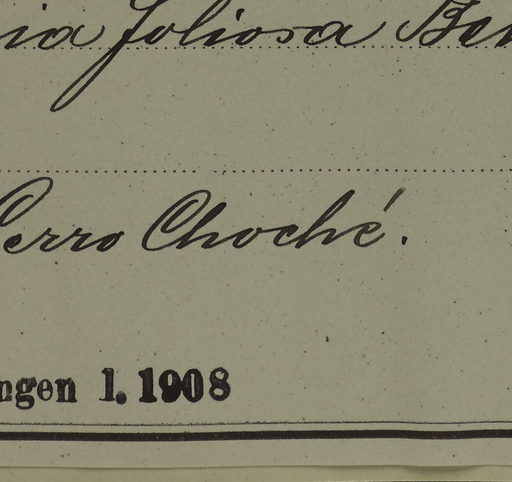 ia foliosa Ben
Cerro Choché.
ngen 1. 1908